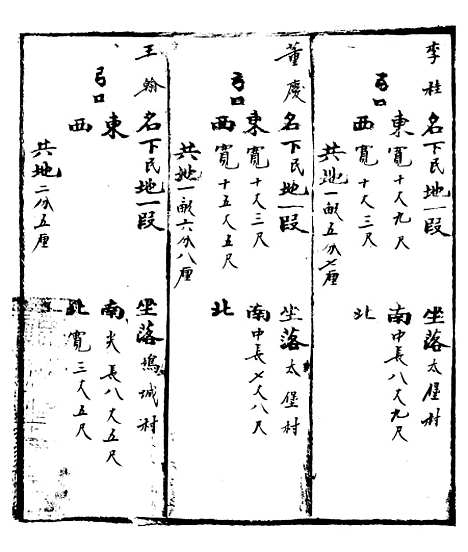 李桂 名下民地一段 坐落太堡村
弓口 東寬十丈九尺 南中長八丈九尺
西寬十丈三尺 北
共地一畝五分七厘
董慶 名下民地一段 坐落太堡村
弓口 東寬十丈三尺 南中長七丈八尺
西寬十五丈五尺 北
共地一畝六分八厘
王翰 名下民地一段 坐落塢城村
弓口 東 南尖長八丈五尺
西 北寬三丈五尺
共地二分五厘